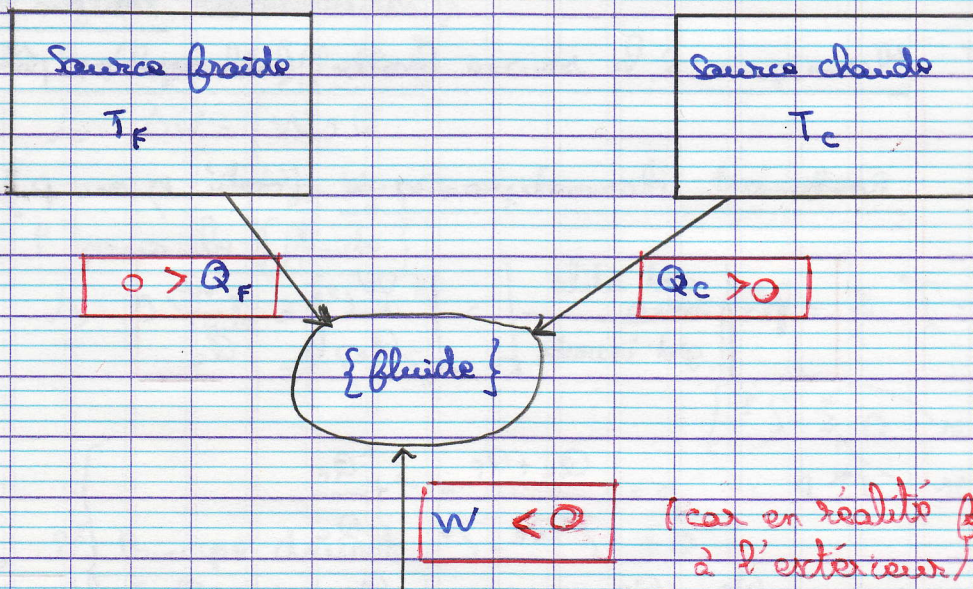 Source froide
T_F
Source chaude
T_C
0 > Q_F
Q_C > 0
{ fluide }
W < 0
(car en réalité
à l'extérieur)